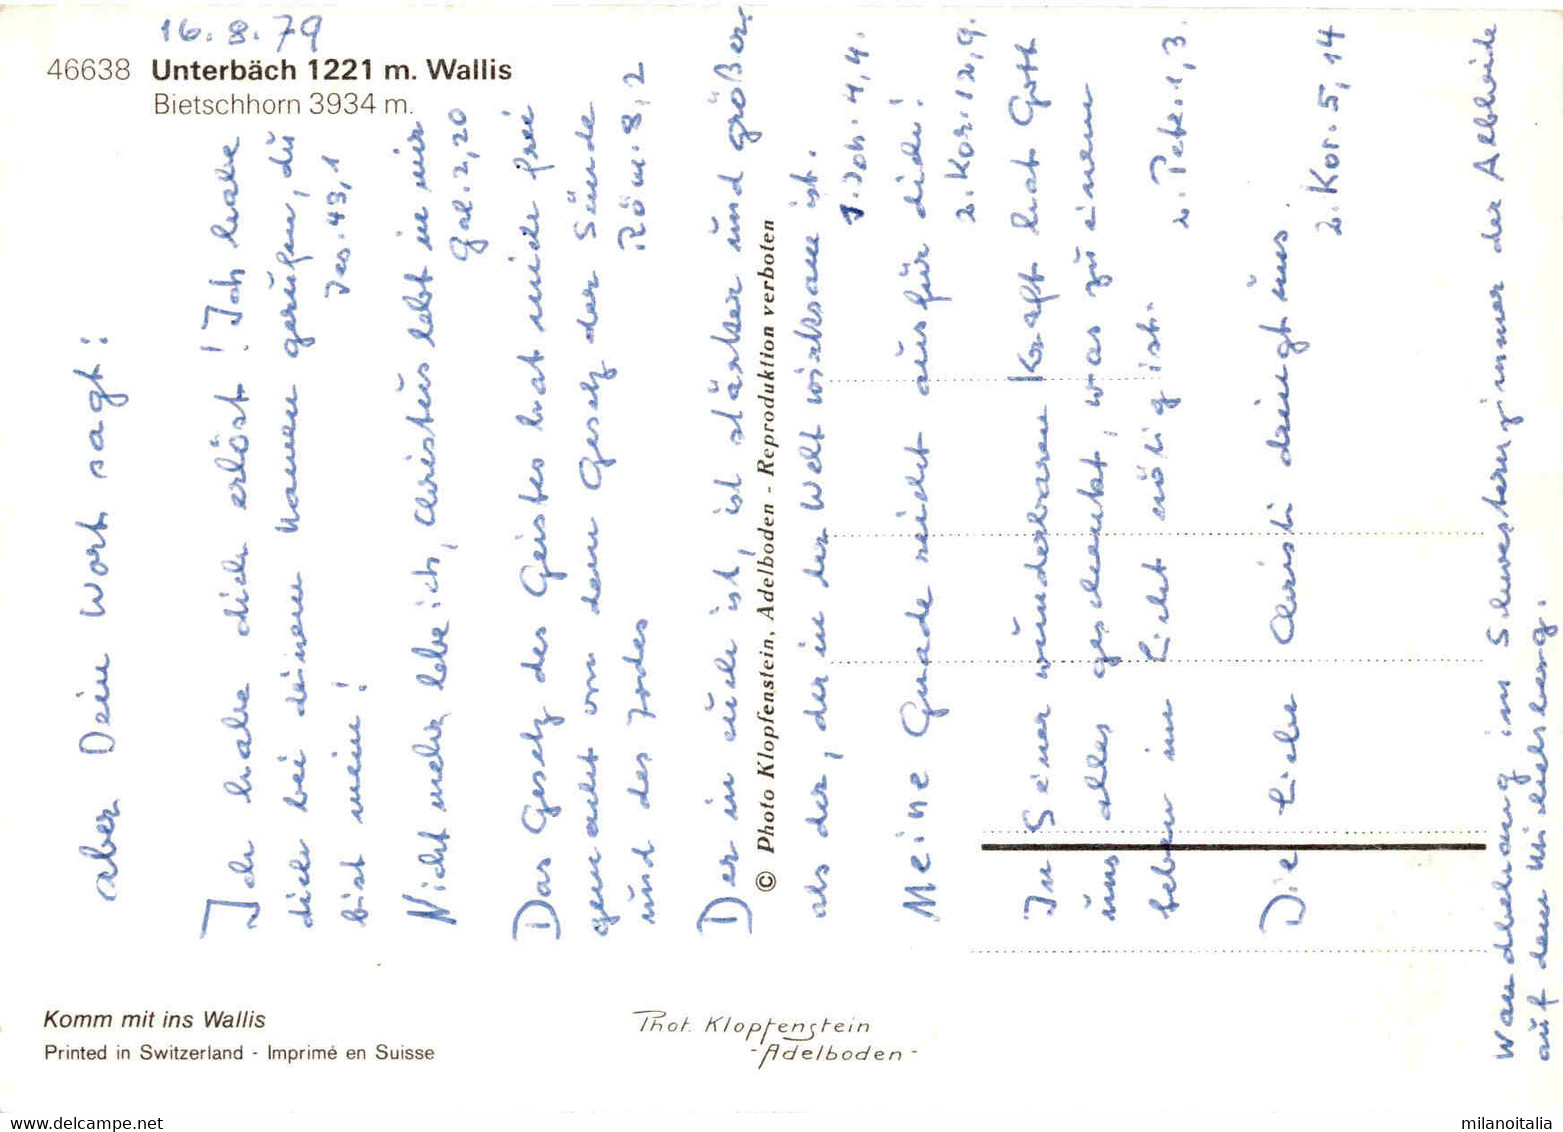 16.8.79
46638 Unterbäch 1221 m. Wallis
Bietschhorn 3934 m.
aber Dein Wort sagt:
Ich habe dich erlöst! Ich habe
dich bei deinem Namen gerufen, du
bist mein!
Jes. 43,1
Nicht mehr lebe ich, Christus lebt in mir
Gal. 2,20
Das Gesetz des Geistes hat mich frei
gemacht von dem Gesetz der Sünde
und des Todes
Röm. 8,2
Der in euch ist, ist stärker und größer
als der, der in der Welt wirksam ist.
1. Joh. 4,4.
Meine Gnade reicht aus für dich!
2. Kor. 12,9.
In Seiner wunderbaren Kraft hat Gott
uns alles geschenkt, was zu einem
Leben im Licht nötig ist.
2. Petr. 1,3.
Die Liebe Christi dringt uns
2. Kor. 5,14
Wandbehang im Schwesternzimmer der
auf dem
© Photo Klopfenstein, Adelboden - Reproduktion verboten
Komm mit ins Wallis
Printed in Switzerland - Imprimé en Suisse
Phot. Klopfenstein
- Adelboden -
milanoitalia